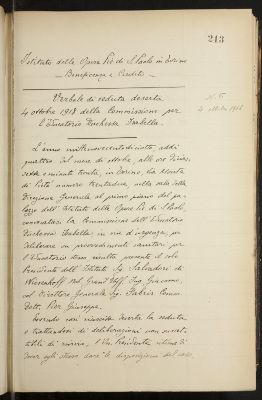 213
Istituto delle Opere Pie di S. Paolo in Torino
- Beneficenza e Credito -
Verbale di seduta deserta
4 ottobre 1918 della Commissione per
l'Educatorio Duchessa Isabella.
4 ottobre 1918
L'anno millenovecentodiciotto addì
quattro del mese di ottobre, alle ore
sette e minuti trenta, in Torino, via Monte
di Pietà numero trentadue, nella sala della
Direzione Generale al primo piano del pa-
lazzo dell'Istituto delle Opere Pie di S. Paolo,
convocatasi la Commissione dell'Educatorio
Duchessa Isabella in via d'urgenza per
deliberare su provvedimenti sanitari per
l'Educatorio stesso risulta presente il solo
Presidente dell'Istituto Sg. Salvadori di
Wiesenhoff Nob. Grand'Uff. Ing. Giacomo,
col Direttore Generale Sg. Fabris Comm.
Dott. Pier Giuseppe.
Essendo così riuscita deserta la seduta
e trattandosi di deliberazioni non suscet-
tibili di rinvio, il Sg. Presidente
dover agli stessi dare le disposizioni del caso